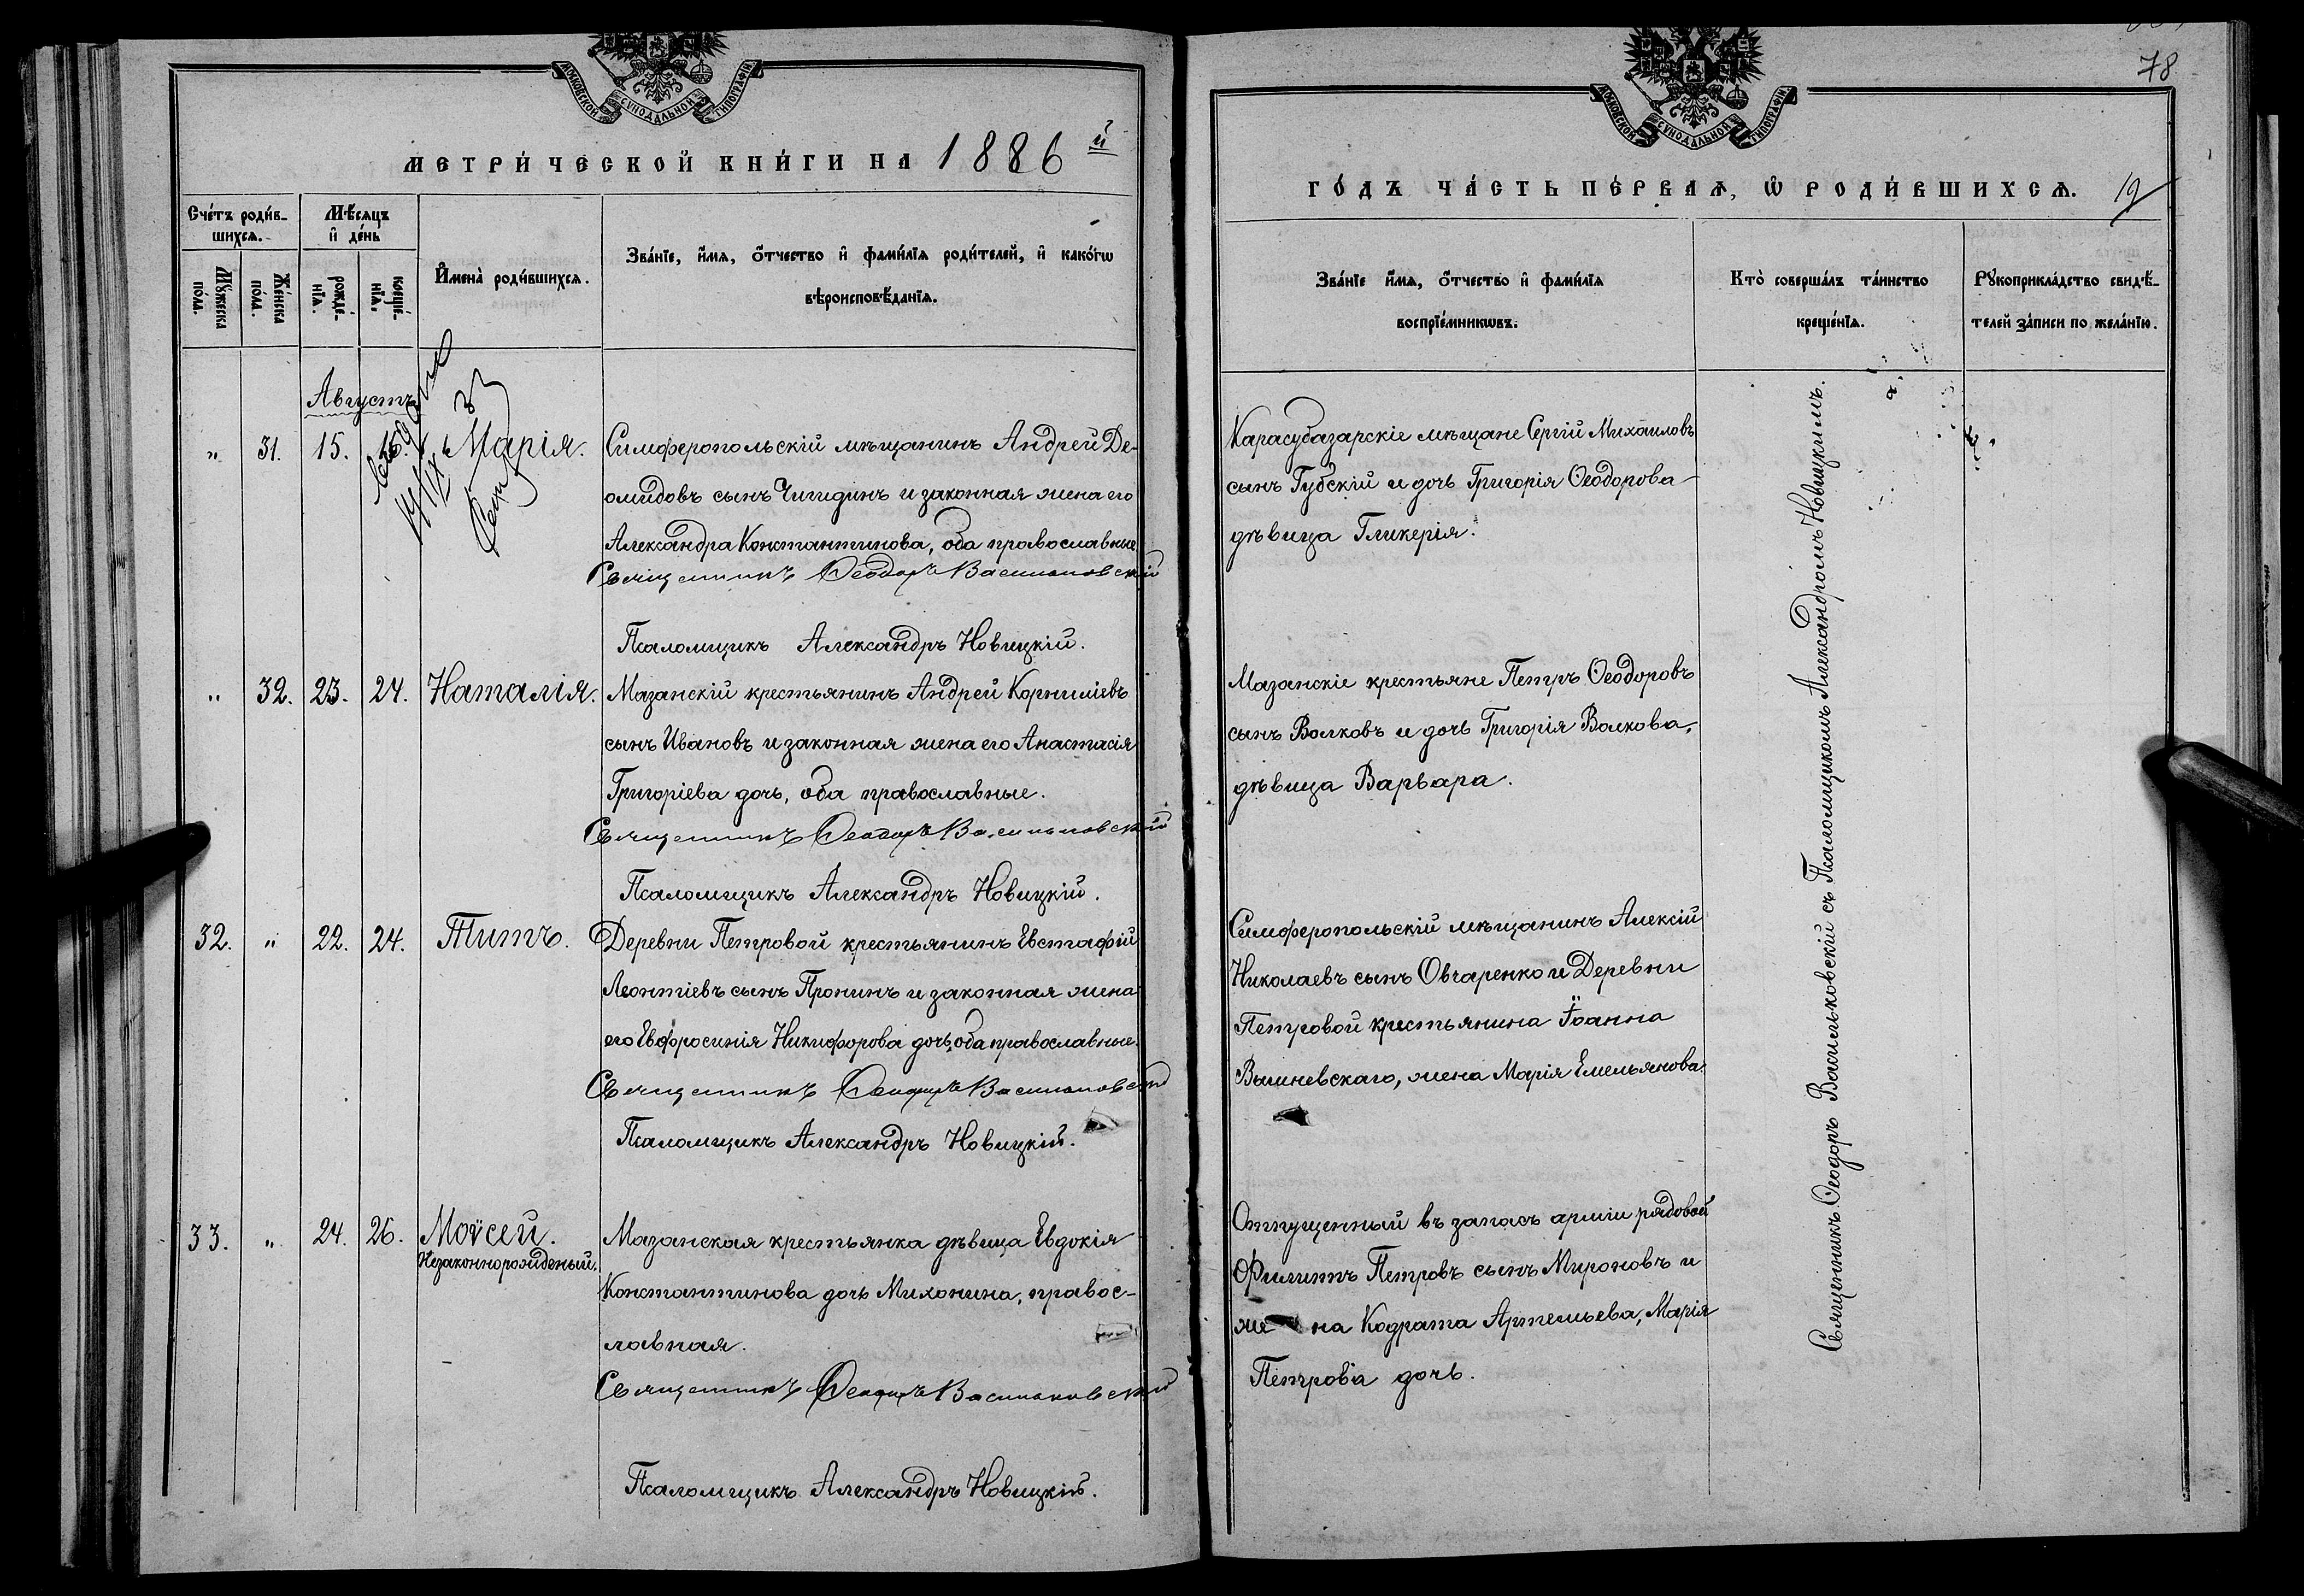 МОСКОВСКОЙ СѴНОДАЛЬНОЙ ТИПОГРАФІИ
МЕТРИ́ЧЕСКОЙ КНИ́ГИ НА 1886й
Сче́тъ роди́в-
шихсѧ.
Мѣ́сѧцъ
и҆ де́нь
Мꙋ́жеска
по́ла.
Же́нска
по́ла.
рожде́-
нїѧ.
креще́-
нїѧ.
И҆мена̀ роди́вшихсѧ.
Зва́нїе, и҆́мѧ, ѻ҆́тчество и҆ фами́лїѧ роди́телей, и҆ како́гѡ
вѣроисповѣ́данїѧ.
Августъ
„ 31. 15. 16. Марія.
Симферопольскій мѣщанинъ Андрей Де-
омидовъ сынъ Чигидинъ и законная жена его
Александра Константинова, оба православные
Священникъ Ѳеодоръ Васильковскій
Псаломщикъ Александръ Новицкій.
„ 32. 23. 24. Наталія.
Мазанскій крестьянинъ Андрей Корниліевъ
сынъ Ивановъ и законная жена его Анастасія
Григоріева дочь, оба православные.
Священникъ Ѳеодоръ Васильковскій
Псаломщикъ Александръ Новицкій.
32. „ 22. 24. Титъ.
Деревни Петровой крестьянинъ Евстафій
Леонтіевъ сынъ Пронинъ и законная жена
его Евфросинія Никифорова дочь, оба православные.
Священникъ Ѳеодоръ Васильковскій
Псаломщикъ Александръ Новицкій.
33. „ 24. 26. Моѵсей.
Незаконнорожденый.
Мазанская крестьянка дѣвица Евдокія
Константинова дочь Михонина, правос-
лавная.
Священникъ Ѳеодоръ Васильковскій
Псаломщикъ Александръ Новицкій.
78
МОСКОВСКОЙ СѴНОДАЛЬНОЙ ТИПОГРАФІИ
ГО́ДЪ ЧА́СТЬ ПЕ́РВАѦ, Ѡ҆ РОДИ́ВШИХСѦ. 19
Зва́нїе и҆́мѧ, ѻ҆́тчество и҆ фами́лїѧ
воспрїе́мникѡвъ.
Кто̀ соверша́лъ та́инство
креще́нїѧ.
Рꙋкоприкла́дство свидѣ́-
телей за́писи по жела́нїю.
Карасубазарскіе мѣщане Сергій Михаиловъ
сынъ Губскій и дочь Григорія Ѳеодорова
дѣвица Гликерія.
Мазанскіе крестьяне Петръ Ѳеодоровъ
сынъ Волковъ и дочь Григорія Волкова,
дѣвица Варвара.
Симферопольскій мѣщанинъ Алексій
Николаевъ сынъ Овчаренко и Деревни
Петровой крестьянина Іоанна
Вышневскаго, жена Марія Емельянова.
Отпущенный въ запасъ арміи рядовой
Филиппъ Петровъ сынъ Мироновъ и
же на Кодрата Артемьева, Марія
Петрова дочь.
Священникъ Ѳеодоръ Васильковскій съ Псаломщикомъ Александромъ Новицкимъ.